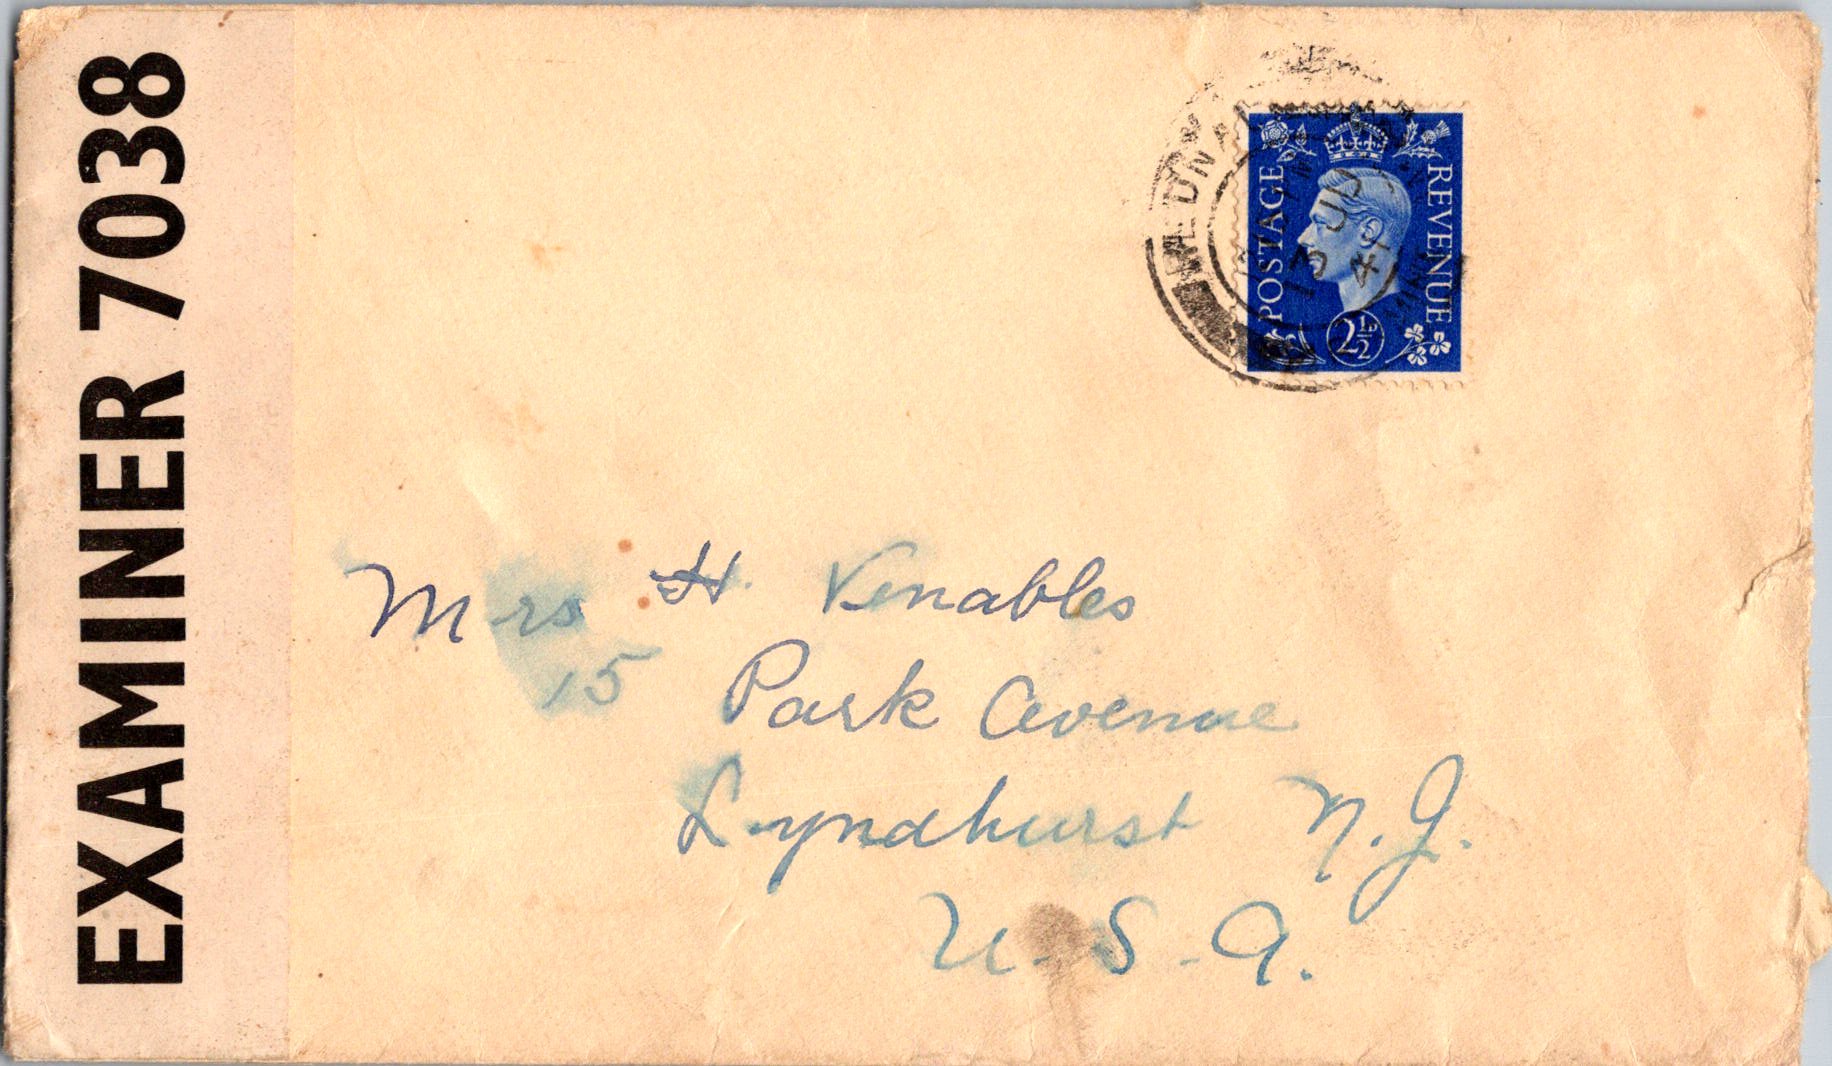 EXAMINER 7038
POSTAGE
REVENUE
2½D
13 JU
Mrs H. Venables
15 Park Avenue
Lyndhurst N.J.
U.S.A.